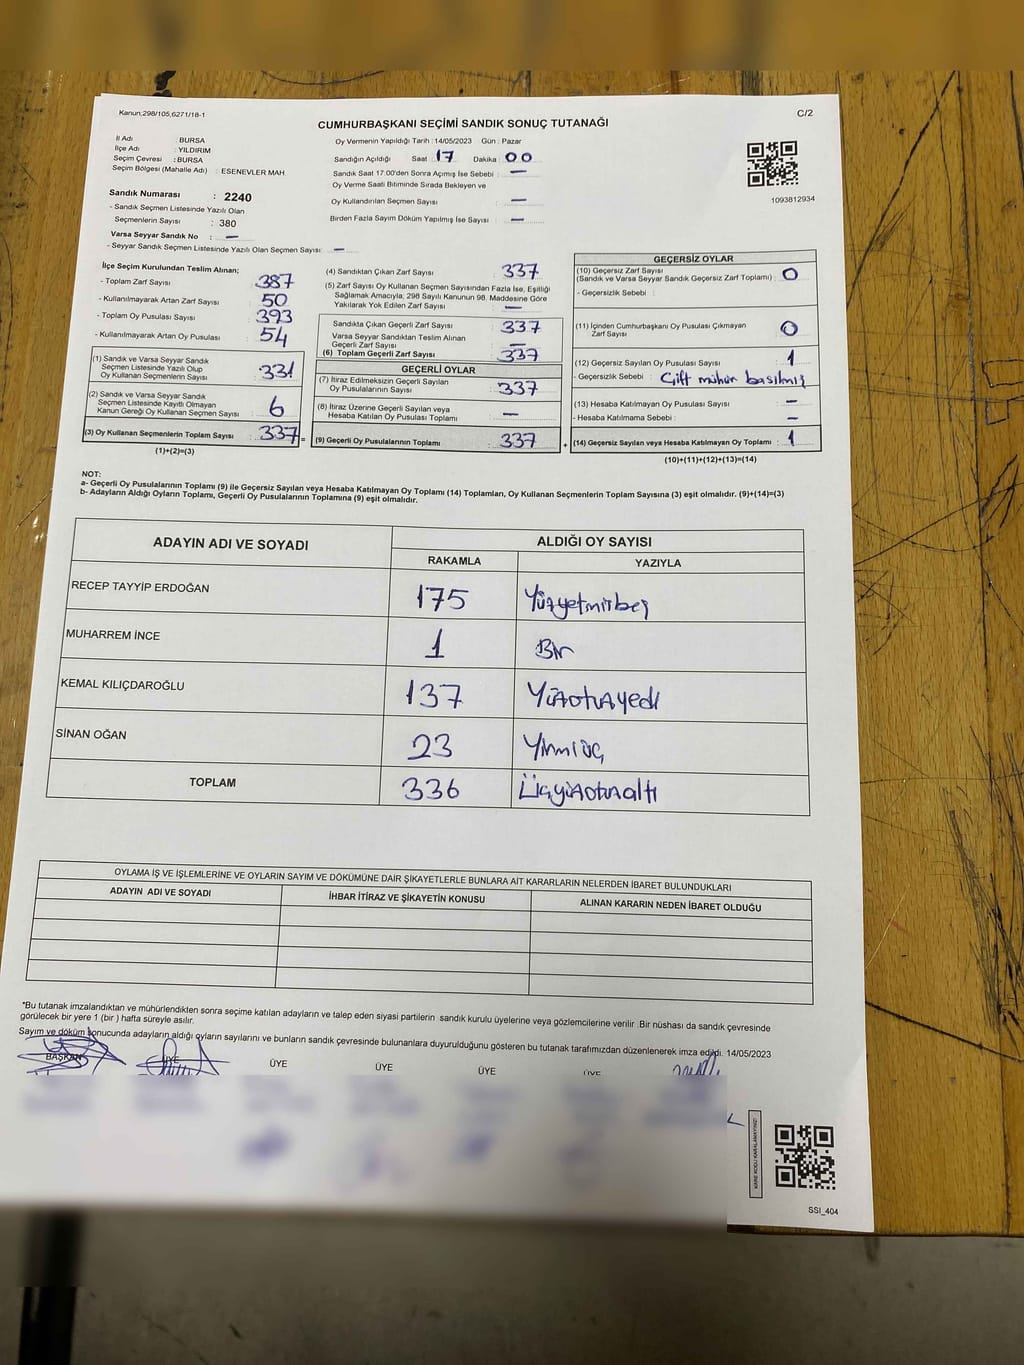 Kanun;298/105,6271/18-1
C/2
CUMHURBAŞKANI SEÇİMİ SANDIK SONUÇ TUTANAĞI
İl Adı : BURSA
İlçe Adı : YILDIRIM
Seçim Çevresi : BURSA
Seçim Bölgesi (Mahalle Adı) : ESENEVLER MAH
Sandık Numarası : 2240
- Sandık Seçmen Listesinde Yazılı Olan
Seçmenlerin Sayısı : 380
Varsa Seyyar Sandık No : —
- Seyyar Sandık Seçmen Listesinde Yazılı Olan Seçmen Sayısı: —
Oy Vermenin Yapıldığı Tarih : 14/05/2023 Gün : Pazar
Sandığın Açıldığı Saat : 17 Dakika : 00
Sandık Saat 17.00'den Sonra Açımış İse Sebebi : —
Oy Verme Saati Bitiminde Sırada Bekleyen ve
Oy Kullandırılan Seçmen Sayısı : —
Birden Fazla Sayım Döküm Yapılmış İse Sayısı : —
1093812934
İlçe Seçim Kurulundan Teslim Alınan;
- Toplam Zarf Sayısı : 387
- Kullanılmayarak Artan Zarf Sayısı : 50
- Toplam Oy Pusulası Sayısı : 393
- Kullanılmayarak Artan Oy Pusulası : 54
(1) Sandık ve Varsa Seyyar Sandık
Seçmen Listesinde Yazılı Olup
Oy Kullanan Seçmenlerin Sayısı : 331
(2) Sandık ve Varsa Seyyar Sandık
Seçmen Listesinde Kayıtlı Olmayan
Kanun Gereği Oy Kullanan Seçmen Sayısı : 6
(3) Oy Kullanan Seçmenlerin Toplam Sayısı : 337 =
(1)+(2)=(3)
(4) Sandıktan Çıkan Zarf Sayısı : 337
(5) Zarf Sayısı Oy Kullanan Seçmen Sayısından Fazla İse, Eşitliği
Sağlamak Amacıyla; 298 Sayılı Kanunun 98. Maddesine Göre
Yakılarak Yok Edilen Zarf Sayısı : —
Sandıkta Çıkan Geçerli Zarf Sayısı : 337
Varsa Seyyar Sandıktan Teslim Alınan
Geçerli Zarf Sayısı : —
(6) Toplam Geçerli Zarf Sayısı : 337
GEÇERLİ OYLAR
(7) İtiraz Edilmeksizin Geçerli Sayılan
Oy Pusulalarının Sayısı : 337
(8) İtiraz Üzerine Geçerli Sayılan veya
Hesaba Katılan Oy Pusulası Toplamı : —
(9) Geçerli Oy Pusulalarının Toplamı : 337 +
GEÇERSİZ OYLAR
(10) Geçersiz Zarf Sayısı
(Sandık ve Varsa Seyyar Sandık Geçersiz Zarf Toplamı) : 0
- Geçersizlik Sebebi :
(11) İçinden Cumhurbaşkanı Oy Pusulası Çıkmayan
Zarf Sayısı : 0
(12) Geçersiz Sayılan Oy Pusulası Sayısı : 1
- Geçersizlik Sebebi : Çift mühür basılmış
(13) Hesaba Katılmayan Oy Pusulası Sayısı : —
- Hesaba Katılmama Sebebi : —
(14) Geçersiz Sayılan veya Hesaba Katılmayan Oy Toplamı : 1
(10)+(11)+(12)+(13)=(14)
NOT:
a- Geçerli Oy Pusulalarının Toplamı (9) ile Geçersiz Sayılan veya Hesaba Katılmayan Oy Toplamı (14) Toplamları, Oy Kullanan Seçmenlerin Toplam Sayısına (3) eşit olmalıdır. (9)+(14)=(3)
b- Adayların Aldığı Oyların Toplamı, Geçerli Oy Pusulalarının Toplamına (9) eşit olmalıdır.
ADAYIN ADI VE SOYADI
ALDIĞI OY SAYISI
RAKAMLA YAZIYLA
RECEP TAYYİP ERDOĞAN 175 Yüzyetmişbeş
MUHARREM İNCE 1 Bir
KEMAL KILIÇDAROĞLU 137 Yüzotuzyedi
SİNAN OĞAN 23 Yirmiüç
TOPLAM 336 Üçyüzotuzaltı
OYLAMA İŞ VE İŞLEMLERİNE VE OYLARIN SAYIM VE DÖKÜMÜNE DAİR ŞİKAYETLERLE BUNLARA AİT KARARLARIN NELERDEN İBARET BULUNDUKLARI
ADAYIN ADI VE SOYADI İHBAR İTİRAZ VE ŞİKAYETİN KONUSU ALINAN KARARIN NEDEN İBARET OLDUĞU
*Bu tutanak imzalandıktan ve mühürlendikten sonra seçime katılan adayların ve talep eden siyasi partilerin sandık kurulu üyelerine veya gözlemcilerine verilir .Bir nüshası da sandık çevresinde
görülecek bir yere 1 (bir ) hafta süreyle asılır.
Sayım ve döküm sonucunda adayların aldığı oyların sayılarını ve bunların sandık çevresinde bulunanlara duyurulduğunu gösteren bu tutanak tarafımızdan düzenlenerek imza edildi. 14/05/2023
BAŞKAN ÜYE ÜYE ÜYE ÜYE ÜYE
KARE KODU KARALAMAYINIZ!
SSI_404